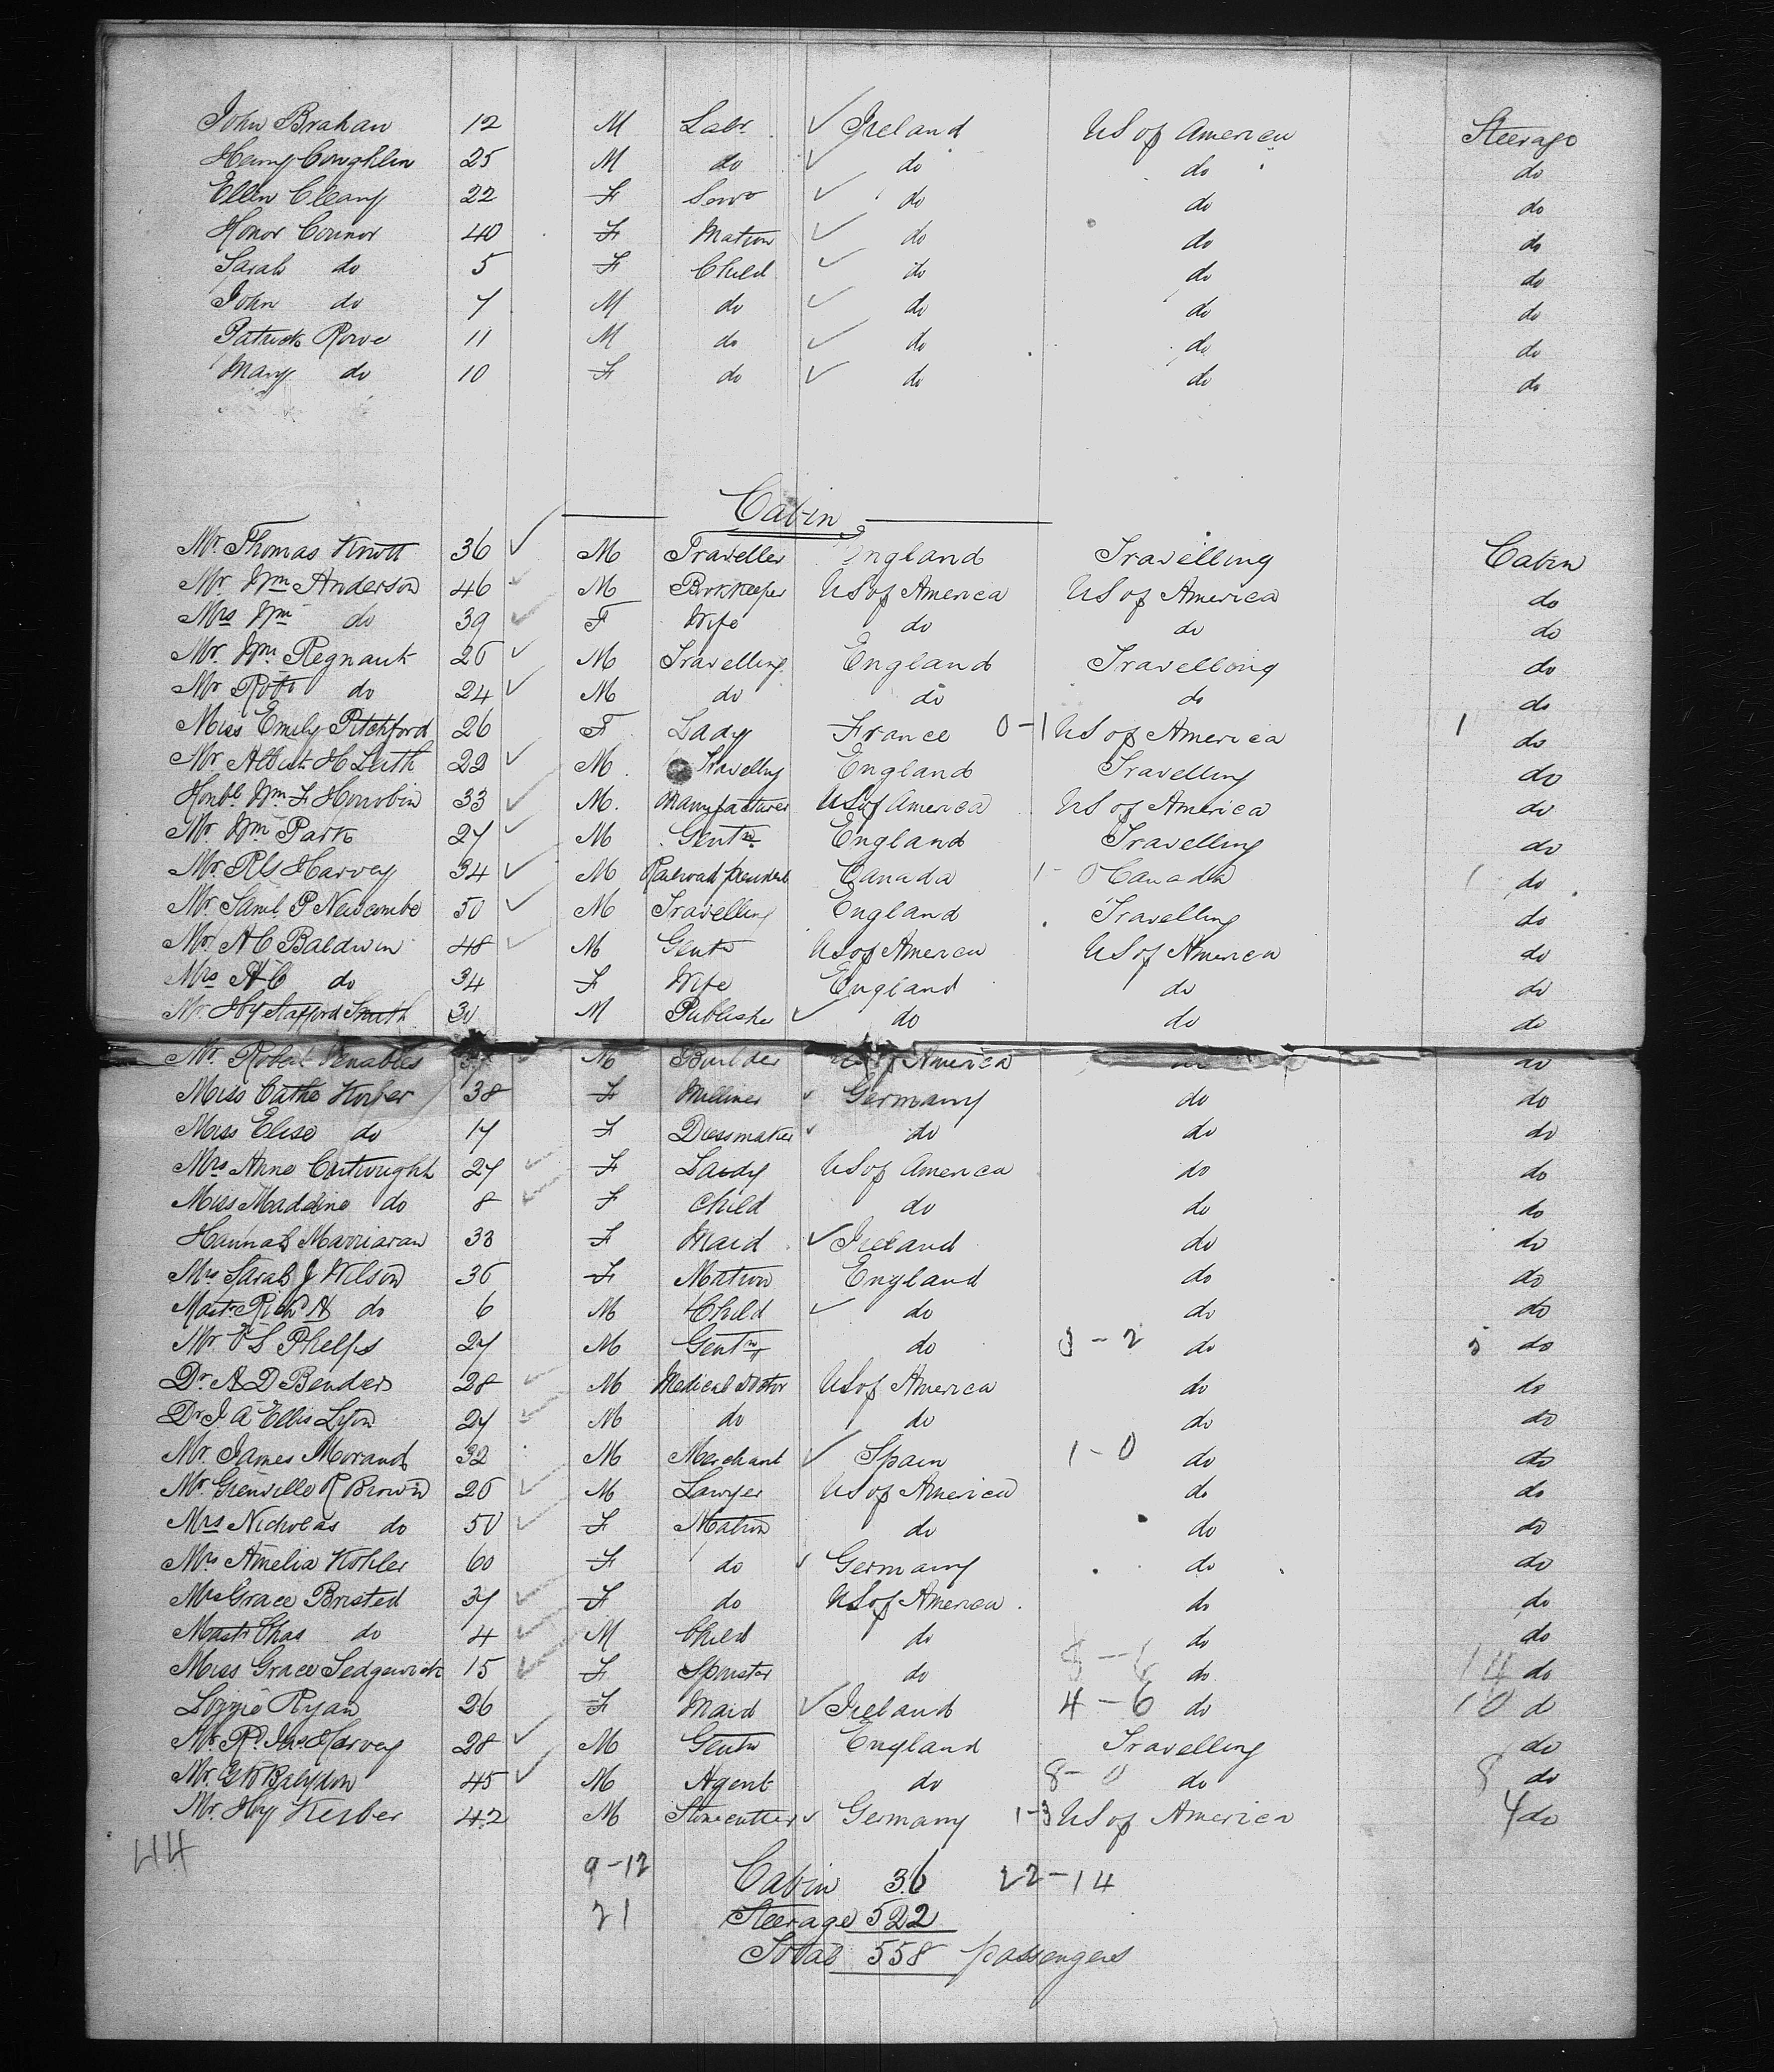 John Brahan 12 M Labr ✓ Ireland US of America Steerage
Henry Coughlin 25 M do ✓ do do do
Ellen Cleary 22 F Servt ✓ do do do
Honor Connor 40 F Matron ✓ do do do
Sarah do 5 F Child ✓ do do do
John do 7 M do ✓ do do do
Patrick Rowe 11 M do ✓ do do do
Mary do 10 F do ✓ do do do
Cabin
Mr. Thomas Knott 36 ✓ M Traveller England Travelling Cabin
Mr. Wm Anderson 46 ✓ M Bookkeeper US of America US of America do
Mrs Wm do 39 ✓ F Wife do do do
Mr. Wm Regnault 26 ✓ M Travelling England Travelling do
Mr Robt do 24 ✓ M do do do do
Miss Emily Pitchford 26 F Lady France 0-1 US of America 1 do
Mr Albert H Leith 22 ✓ M Travelling England Travelling do
Honbl Wm F 33 ✓ M. Manufacturer US of America US of America do
Mr. Wm Park 27 ✓ M Gentn England Travelling do
Mr. Harvey 34 ✓ M Railroad President Canada 1-0 Canada 1 do
Mr. Saml. P Newcombe 50 ✓ M Travelling England Travelling do
Mr. A C Baldwin 48 ✓ M Gentn US of America US of America do
Mrs A C do 34 F Wife England do do
Mr. Hy Stafford Smith 30 M Publisher ✓ do do do
Mr. Robert Venables ✓ M Builder US of America do do
Miss Cathe Korber 38 F Milliner ✓ Germany do do
Miss Elise do 17 F Dressmaker ✓ do do do
Mrs Anne Cartwright 27 ✓ F Lady US of America do do
Miss Madeline do 8 ✓ F Child do do do
Hannah 33 F Maid ✓ Ireland do do
Mrs Sarah J Wilson 36 F Matron England do do
Mastr Richd A do 6 M Child ✓ do do do
Mr. Phelps 27 M Gentn do 3-2 do 5 do
Dr. A D Benders 28 ✓ M Medical Doctor US of America do do
Dr J. A Ellis Lyon 27 ✓ M do do do do
Mr. James Morand 32 M Merchant ✓ Spain 1-0 do do
Mr. Grenville R Brown 26 ✓ M Lawyer US of America do do
Mrs Nicholas do 50 ✓ F Matron do do do
Mrs Amelia Kohler 60 F do ✓ Germany do do
Mrs Grace Bristed 37 ✓ F do US of America do do
Mastr Chas do 4 ✓ M Child do do do
Miss Grace Sedgewick 15 ✓ F Spinster do 8-6 do 14 do
Lizzie Ryan 26 F Maid ✓ Ireland 4-6 do 10 d
Mr. Rd Harvey 28 ✓ M Gentn England Travelling do
Mr. 45 ✓ M Agent do 8-0 do 8 do
Mr. Hy Kerber 42 M Stonecutter ✓ Germany 1-3 US of America 4 do
44
9-12 Cabin 36 22-14
21 Steerage 522
Total 558 passengers